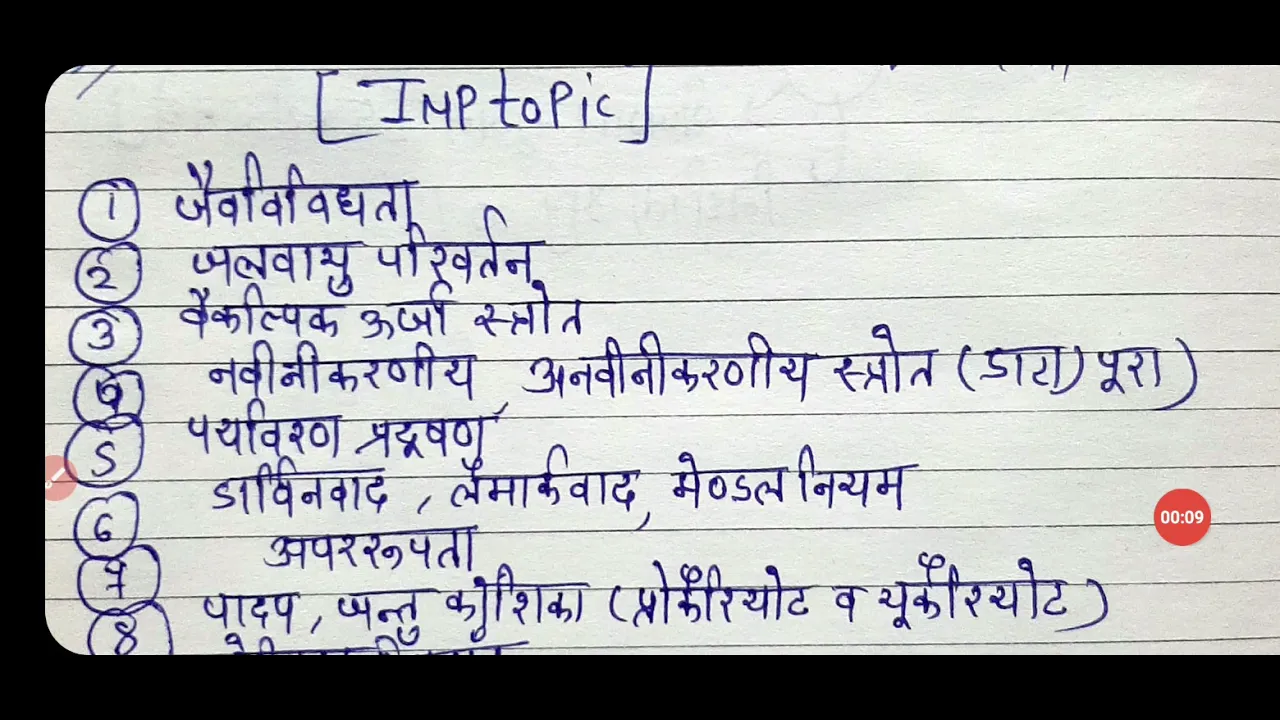 [IMP topic]
① जैवविविधता
② जलवायु परिवर्तन
③ वैकल्पिक ऊर्जा स्त्रोत
④ नवीनीकरणीय, अनवीनीकरणीय स्त्रोत (डाटा) पूरा)
⑤ पर्यावरण प्रदूषण
डार्विनवाद, लैमार्कवाद, मेण्डल नियम
⑥ अपररूपता
⑦ पादप, जन्तु कोशिका (प्रोकैरियोट व यूकैरियोट)
⑧
00:09